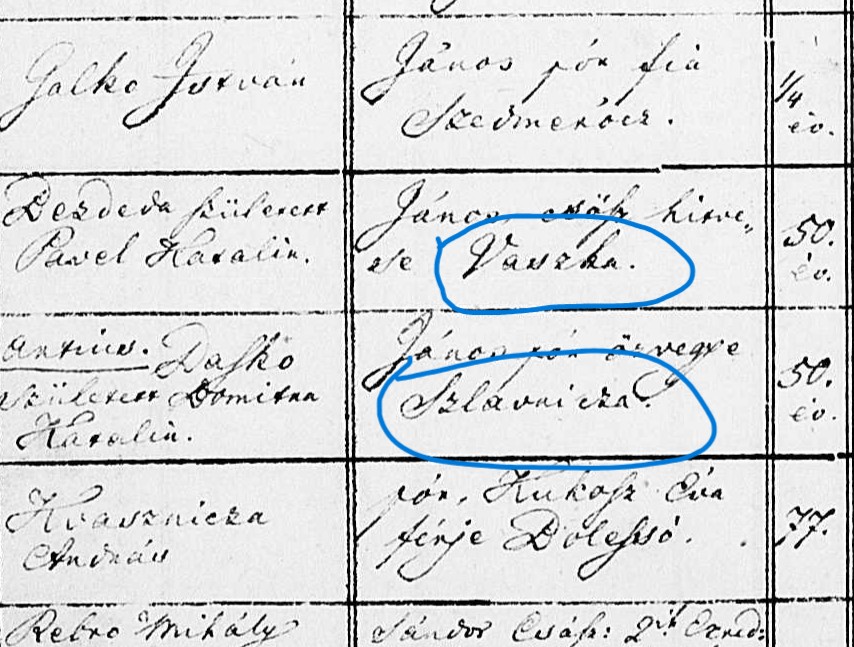 Galko István
János pór fia
Szedmerócz.
1/4
év.
Dezdeda született
Pavel Katalin.
János hitve„
se Vaszka.
50.
év.
Antius. Dasko
született Domitra
Katalin.
János pór özvegye
Szlavnicza.
50.
év.
Kvasznicza
András
pór, Kukosz Éva
férje Dolessó.
77.
Rebro Mihály
Sándor Csász: 2ik Ezred: